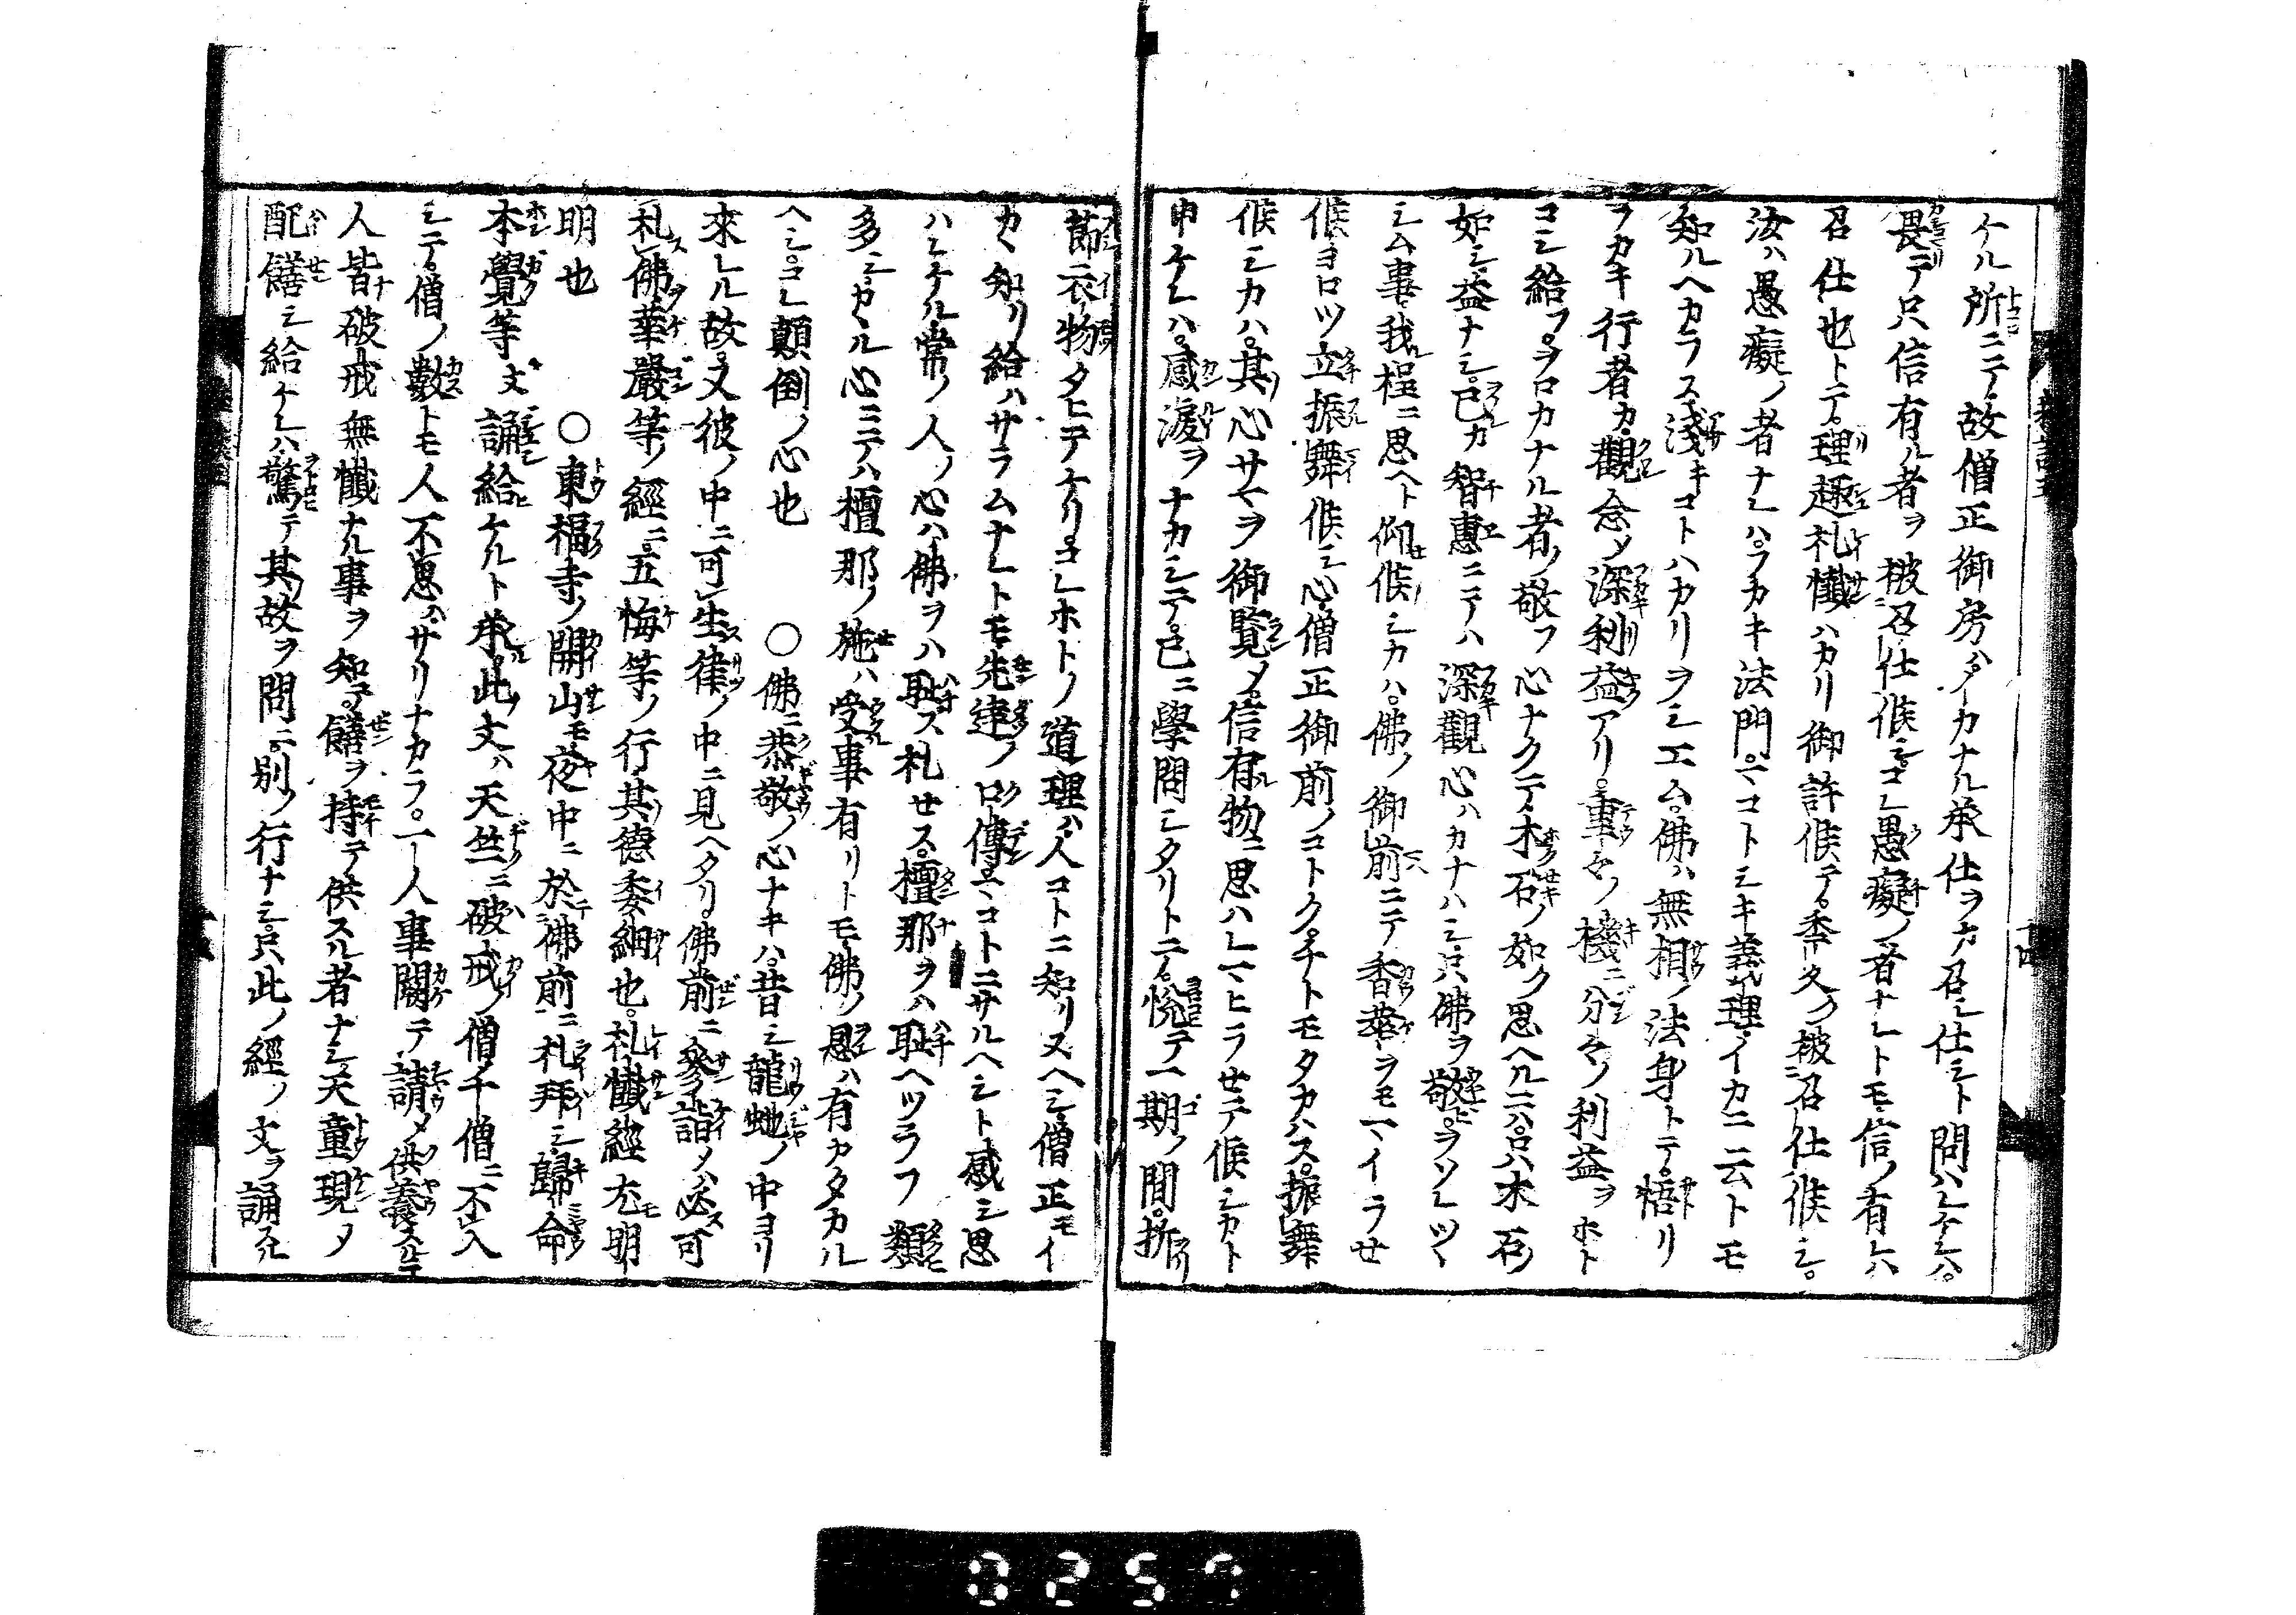 ケル所ニテ故僧正御房ハイカナル承仕ヲカ召シ仕シト問ハレケレハ。
畏テ只信有ル者ヲ被召仕候シ。コレ愚癡ノ者ナレトモ信ノ有レハ
召仕也トテ。理趣礼懺ハカリ御許候テ。季久ク被召仕候シ。
汝ハ愚癡ノ者ナレハ。フカキ法門。マコトシキ義理。イカニ云トモ
知ルヘカラス。淺キコトハカリヲシエム。佛ハ無相ノ法身トテ。悟リ
フカキ行者カ觀念メ深利益アリ。重々ノ機ニ分々ノ利益ヲホト
コシ給フ。ヲロカナル者ノ敬フ心ナクテ。木石ノ如ク思ヘルニハ。只ハ木石ノ
如シ益ナシ。己カ智惠ニテハ深觀心ハカナハシ。只佛ヲ敬ヒ。ヲソレツヽ
シム事。我レ程ニ思ヘト仰候シカハ。佛ノ御前ニテ香華ヲモマイラセ
候ヨロツ立振舞候シ心。僧正御前ノコトク。チトモタカハス。振舞
候シカハ。其心サマヲ御覽メ。信有ル物ニ思ハレマヒラセテ候シカト
申ケレハ。感涙ヲナカシテ。已ニ學問シタリトテ。悦テ一期ノ間。折
節ニ衣物タヒテケリ。コレホトノ道理ハ。人コトニ知リヌヘシ。僧正モイ
カヽ知リ給ハサラムナレトモ。先達ノ口傳マコトニサルヘシト感シ思
ハレケル。常ノ人ノ心ハ。佛ヲハ耻ス札セス。檀那ヲハ耻ヘツラフ類
多シ。カヽル心ニテハ檀那ノ施ハ受事有リトモ。佛ノ恩ハ有カタカル
ヘシ。コレ顛倒ノ心也 ○佛ニ恭敬ノ心ナキハ。昔シ龍虵ノ中ヨリ
來レル故。又彼ノ中ニ可生律ノ中ニ見ヘタリ。佛前ニ參詣メハ必ス可
札佛華嚴等ノ經ニ。五悔等ノ行。其德委細也。札懺經尤明
明也 ○東福寺ノ開山モ夜中ニ於佛前ニ札拜シ歸命
本覺等文誦給ケルト承ル。此文ハ天竺ニ破戒ノ僧。千僧ニ不入
シテ。僧ノ數トモ人不思ハサリナカラ。一人事闕テ。請メ供養スルニ
人皆破戒無懺ナル事ヲ知テ。饍ヲ持テ供スル者ナシ。天童現メ
配饍シ給ケレハ。驚テ其故ヲ問ニ別ノ行ナシ。只此ノ經ノ文ヲ誦スル
0257